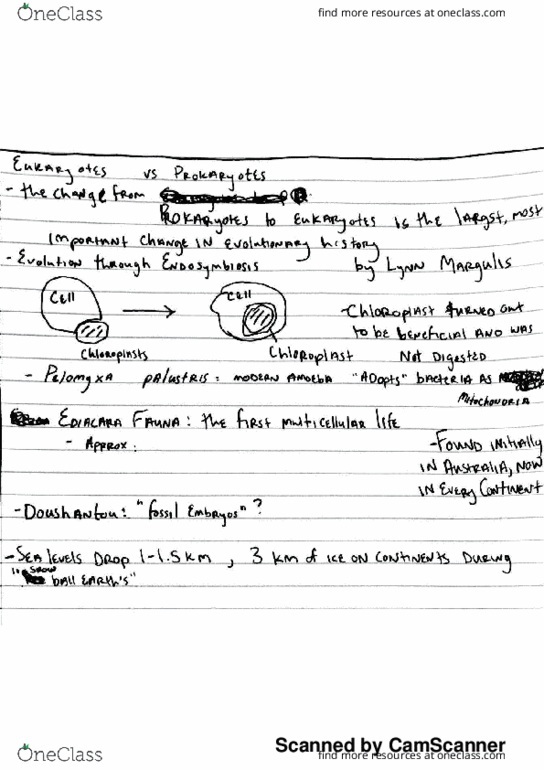 OneClass
find more resources at oneclass.com
Eukaryotes vs Prokaryotes
- the change from
Prokaryotes to eukaryotes is the largst, most
important change in evolutionary history
- Evolution through Endosymbiosis by Lynn Margulis
Cell
Cell
Chloroplasts
Chloroplast
- Chloroplast turned out
to be beneficial and was
Not Digested
- Pelomyxa palustris: modern amoeba "Adopts" bacteria as
Mitochondria
Ediacara Fauna: the first multicellular life
- Approx:
- Found initially
in Australia, now
in every continent
- Doushantou: "fossil Embryos"?
- Sea levels Drop 1-1.5 km, 3 km of ice on continents During
"Snow ball Earth's"
Scanned by CamScanner
OneClass
find more resources at oneclass.com